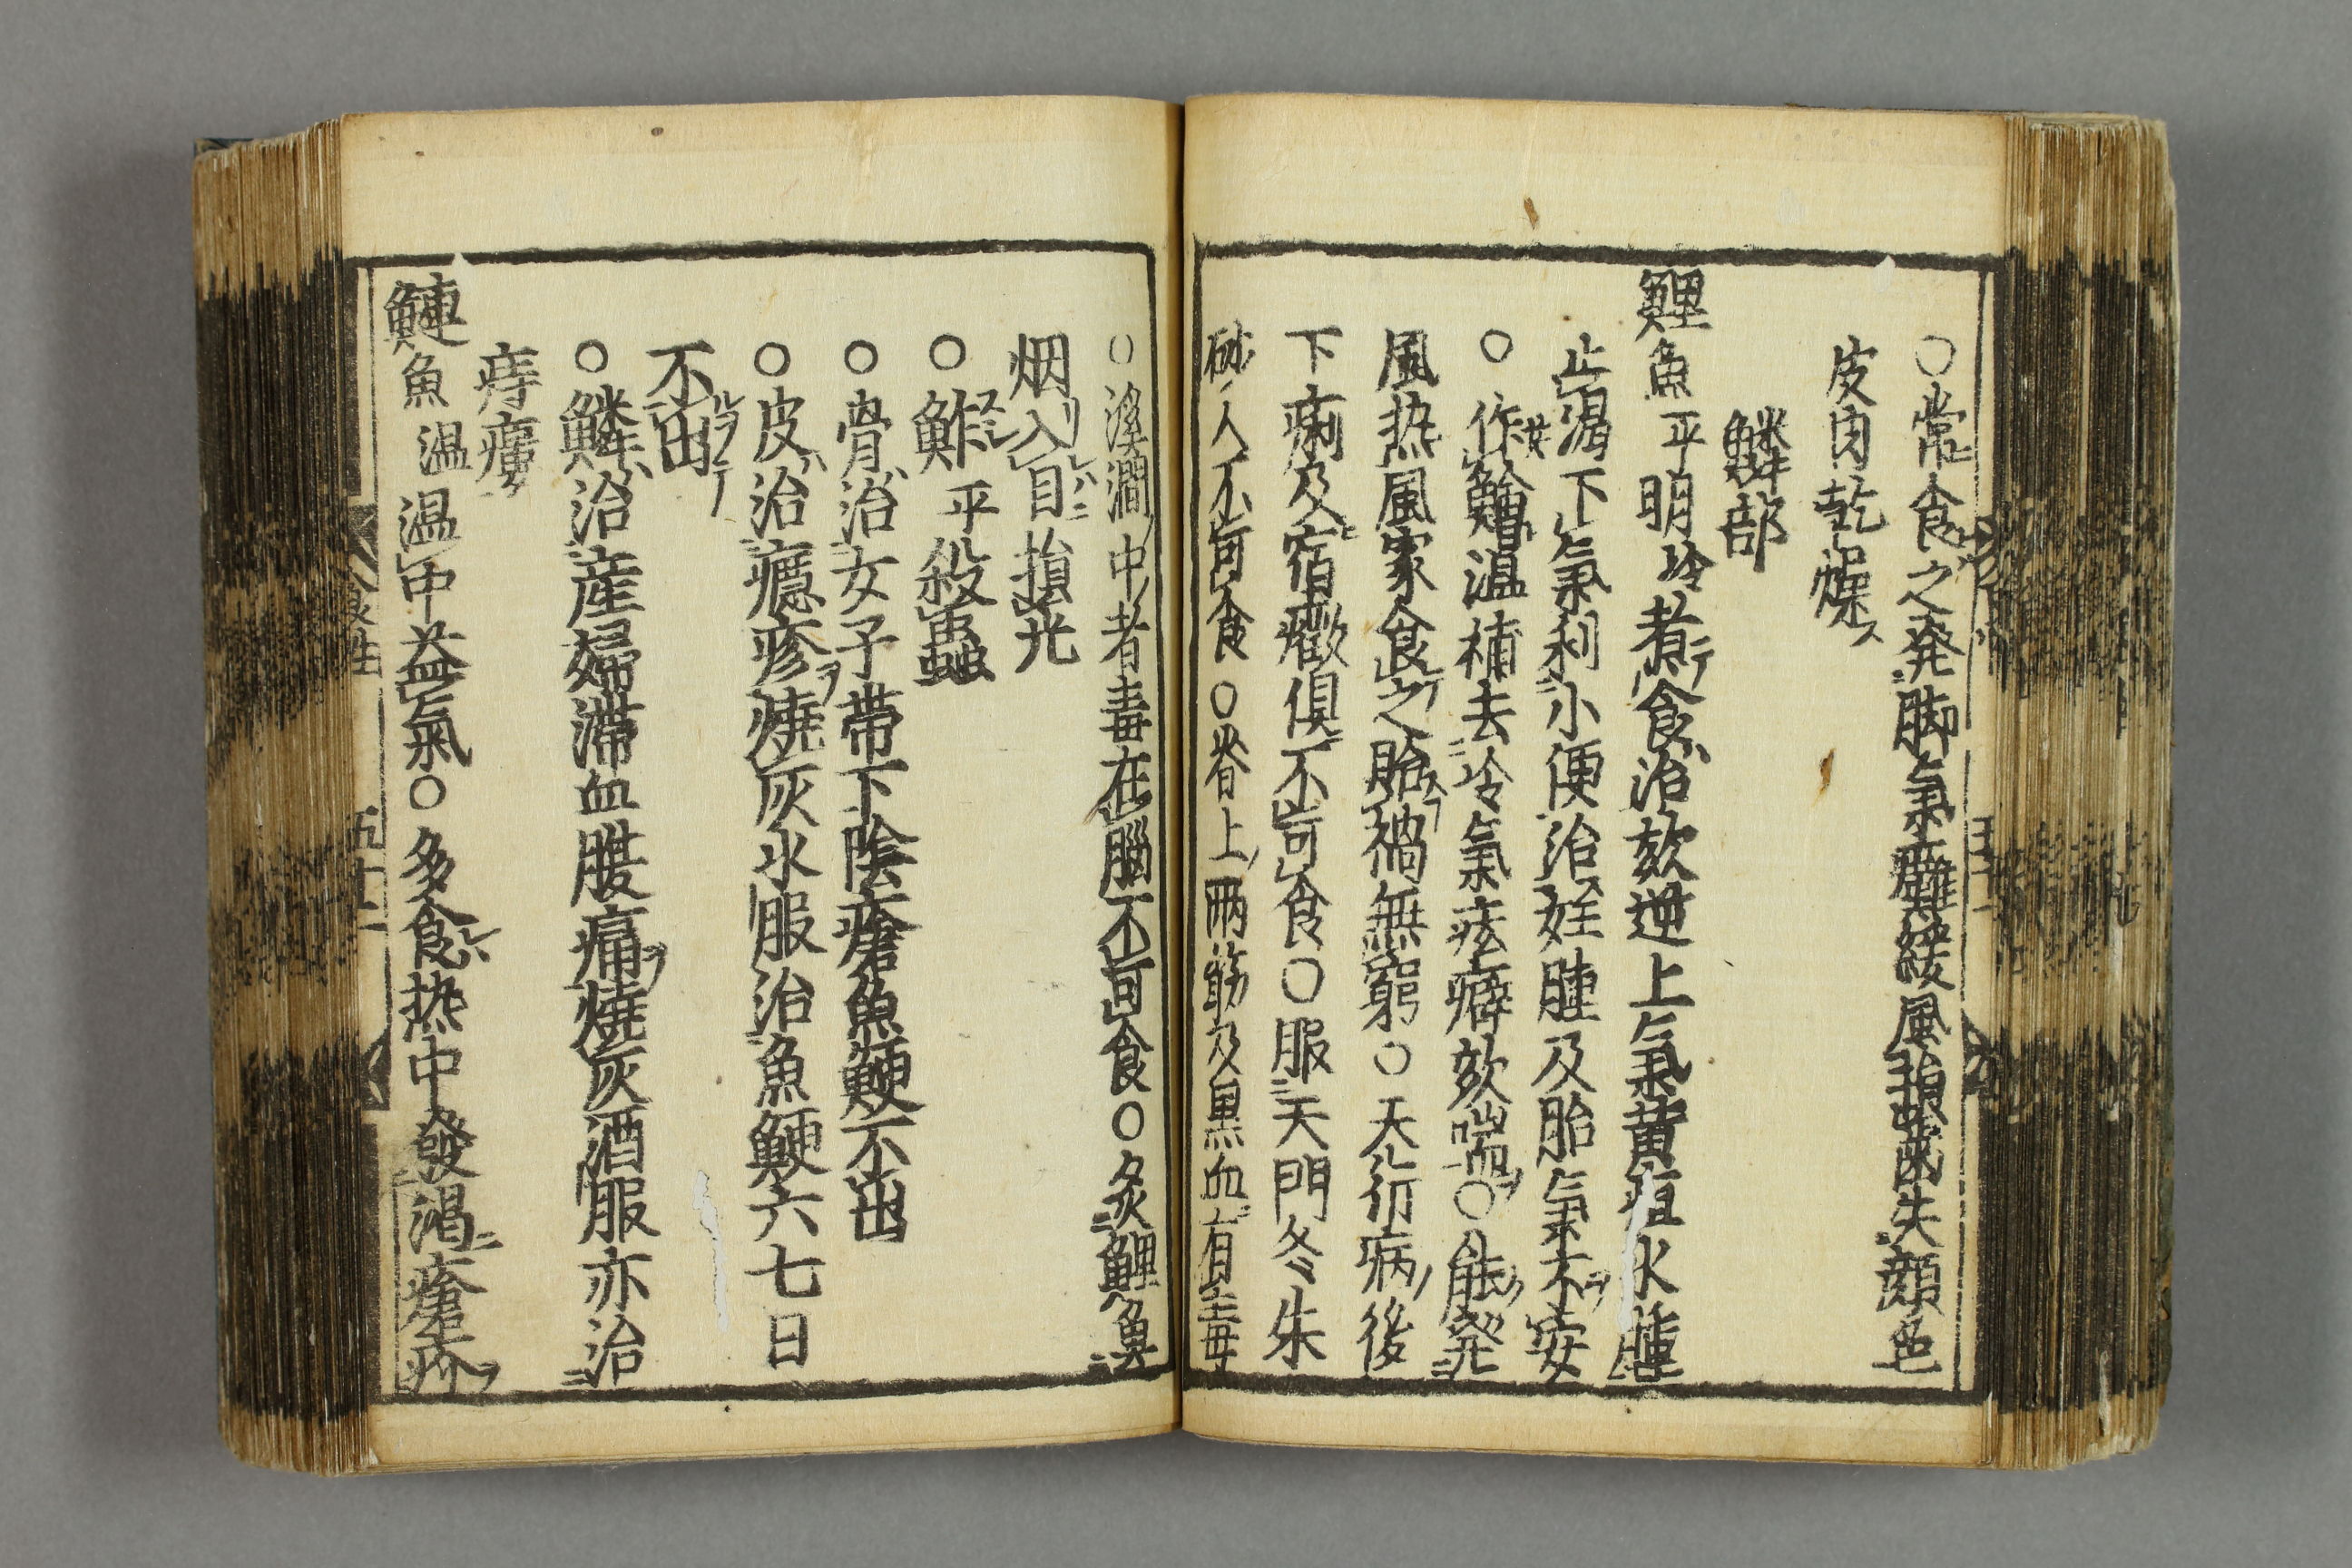 〇常食之発脚氣癱緩風損歯失顔色
皮肉乾燥ス
鱗部
鯉魚 平 明冷 煮テ食ハ治欬逆上氣黄疸水腫
止渇下氣利小便治妊腫及胎氣不安
〇作鱠温補去冷氣痃癖欬喘〇能発
風热風家食之貽禍無窮〇天行病ノ後
下痢及宿癥俱不可食〇服天門冬朱
砂人不可食〇脊上ノ兩筋及黒血有毒
〇溪澗ノ中ノ者毒在腦不可食〇炙鯉魚
烟入目損光
〇鮓 平 殺蟲
〇骨治女子帯下陰瘡魚鯁不出
〇皮ハ治癮疹焼灰水服治魚鯁六七日
不出
〇鱗ハ治産婦滞血腹痛焼灰酒服亦治
痔瘻ヲ
鰱魚 温 温中益氣〇多食热中發渇瘡疥